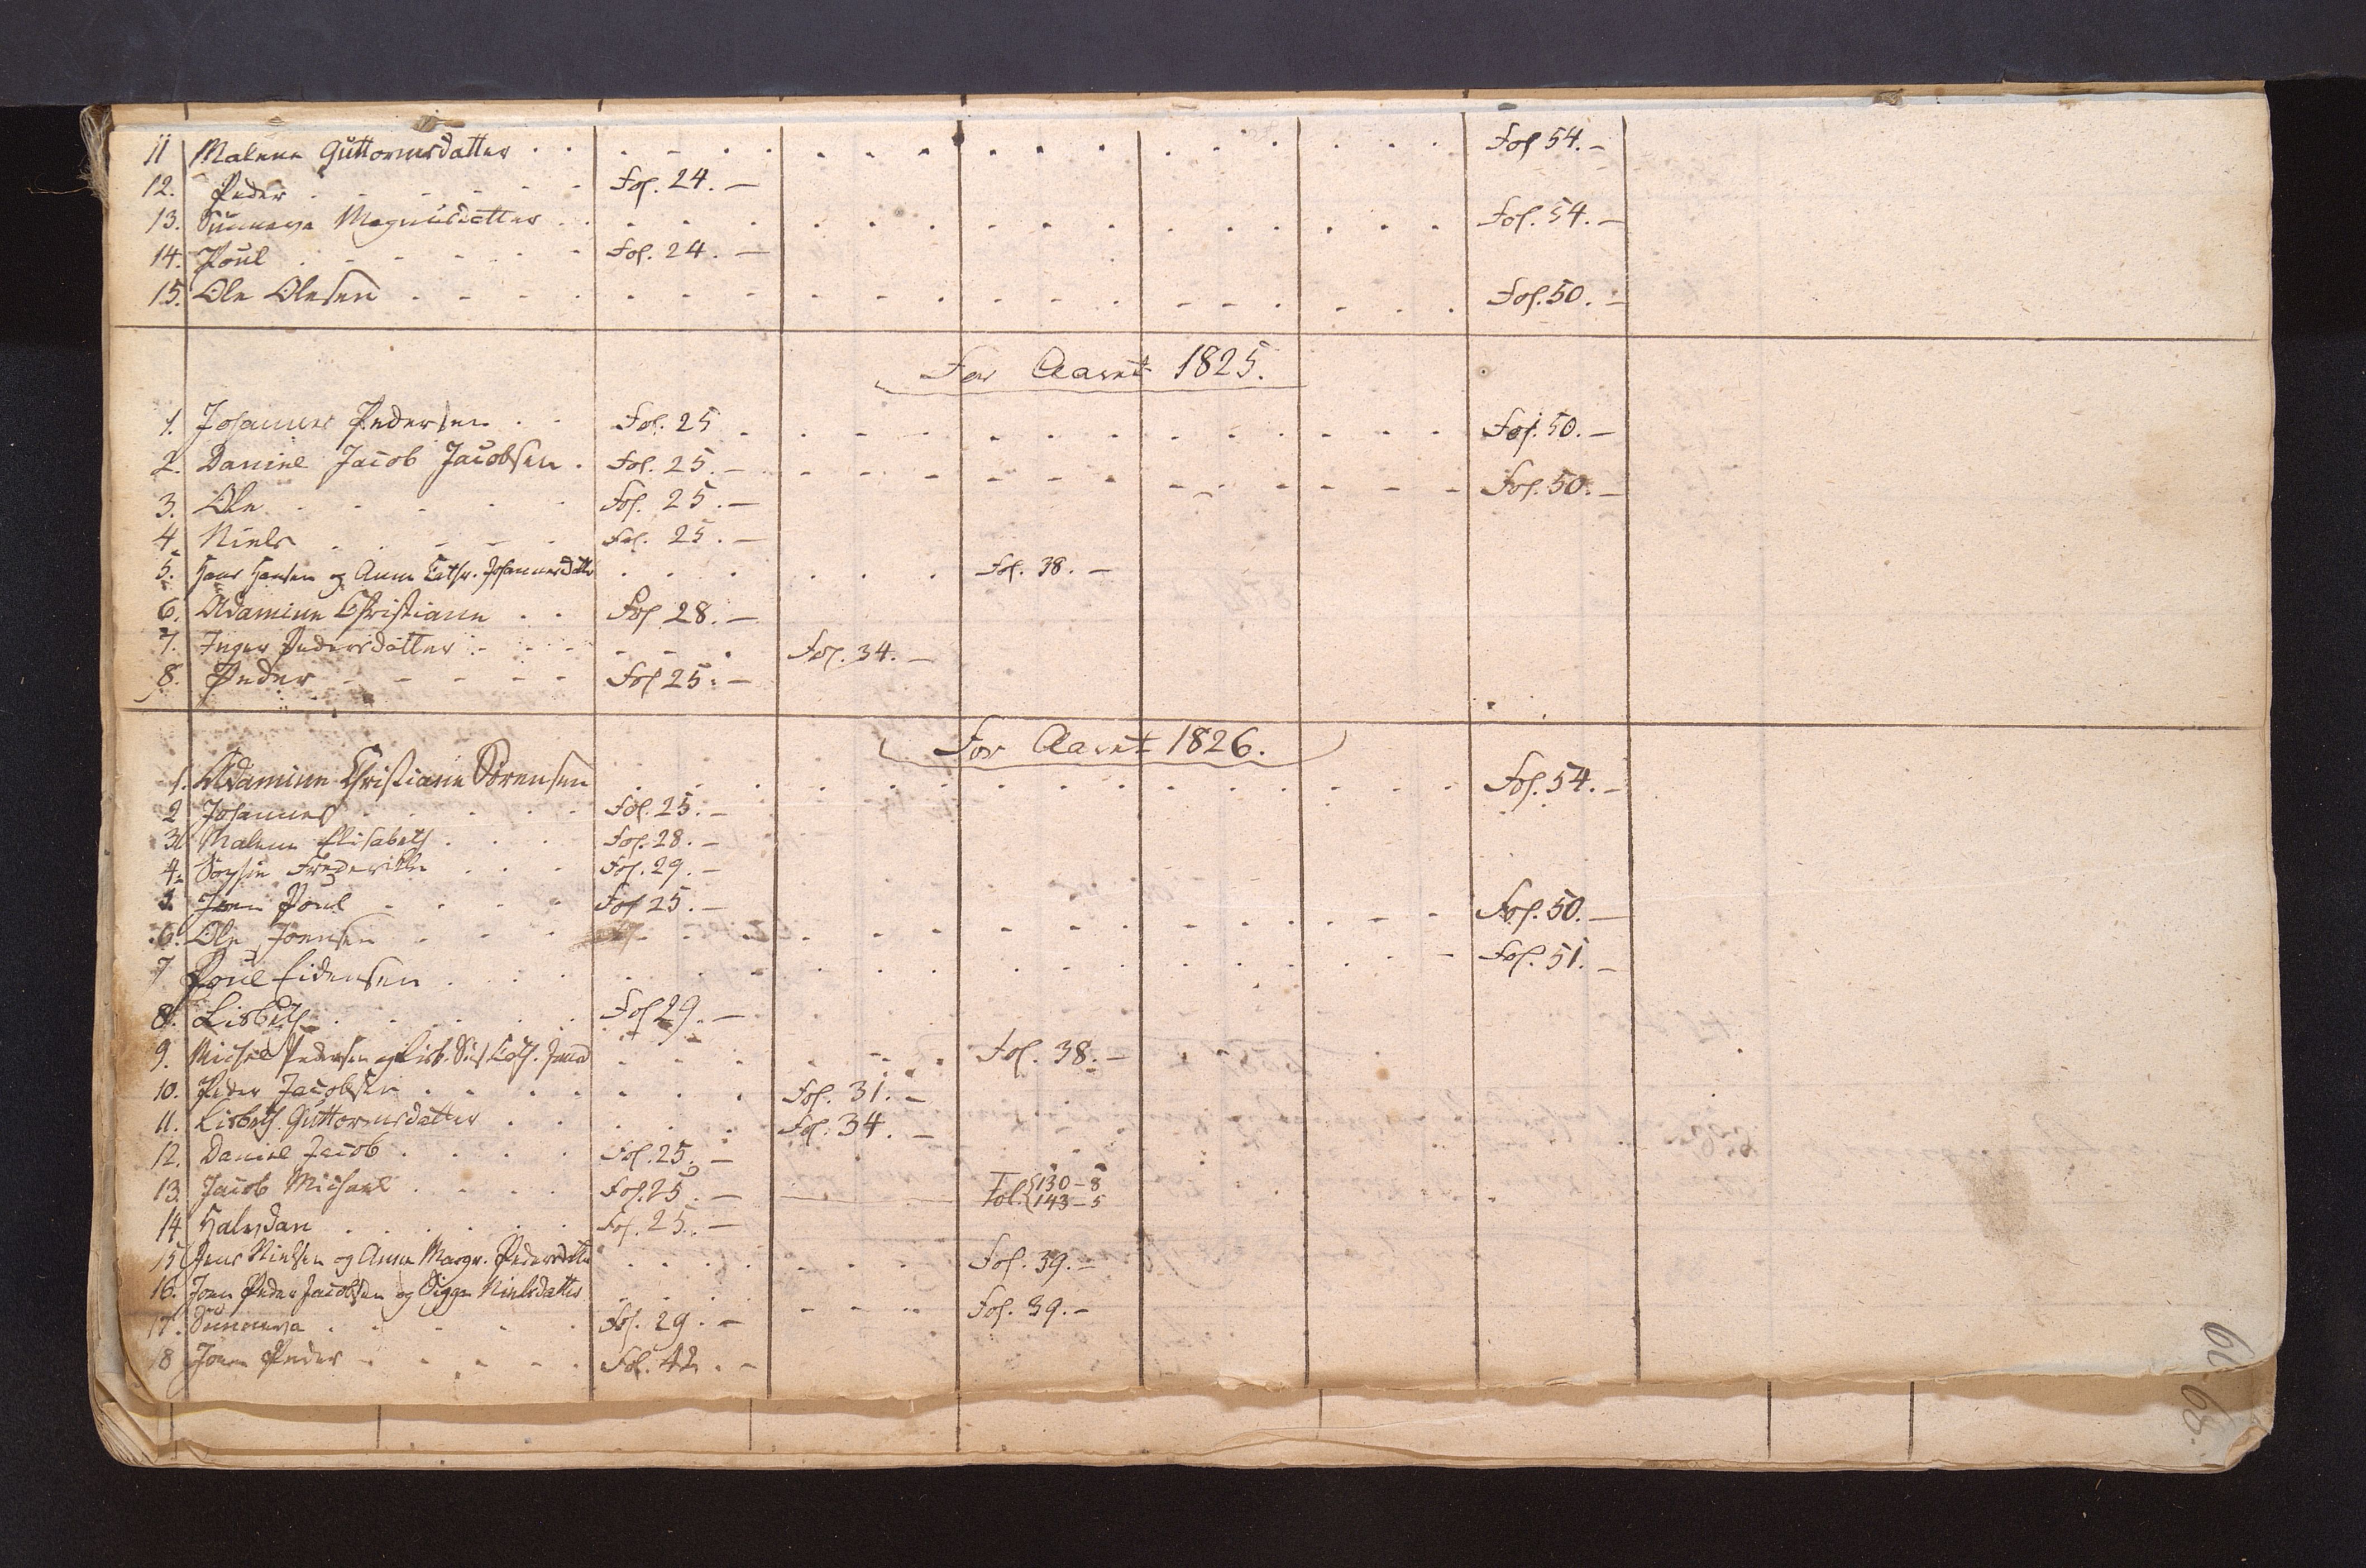 11 Malene Guttormsdatter . . . . . Fol 54. -
12. Peder . . . . . Fol. 24. -
13. Sunneva Magnusdatter . . . . . Fol. 54. -
14. Poul . . . . . Fol. 24. -
15. Ole Olesen . . . . . Fol. 50. -
For Aaret 1825.
1. Johannes Pedersen . . Fol. 25 . . . . . Fol. 50. -
2. Daniel Jacob Jacobsen . Fol. 25. - . . . . . Fol. 50. -
3. Ole . . . . . Fol. 25. -
4. Niels . . . . . Fol. 25. -
5. Hans Hansen og Anne Cathr. Johannesdattr . . . . . Fol. 38. -
6. Adamine Christiane . . Fol 28. -
7. Inger Pedersdatter . . . . . Fol. 34. -
8. Peder . . . . . Fol 25. -
For Aaret 1826.
1. Adamine Christiane Sörensen . . . . . Fol. 54. -
2 Johannes . . . . . Fol. 25. -
3. Malene Elisabeth . . . Fol. 28. -
4. Sophie Frederikke . . . Fol. 29. -
5. Joen Poul . . . . Fol 25. -
6. Ole Joensen . . . . . Fol. 50. -
7 Poul Eidensen . . . . . Fol. 51. -
8. Lisbeth . . . . . Fol 29. -
9. Michel Pedersen og Lisb. . . . . . Fol. 38. -
10. Peder Jacobsen . . . . . Fol. 31. -
11. Lisbeth Guttormsdatter . . . . . Fol. 34. -
12. Daniel Jacob . . . . Fol. 25. -
13. Jacob Michael . . . . Fol. 25. - Fol. {130 - 8
143 - 5
14 Halvdan . . . . . Fol. 25. -
15 Jens Nielsen og Anne Margr. Pedersdatter . . . . . Fol. 39. -
16. Joen Peder Jacobsen og Sigge Nielsdatter . . . . . Fol. 39. -
17. Sunneva . . . . . Fol. 29. -
18 Joen Peder . . . . . Fol. 42. -
68.